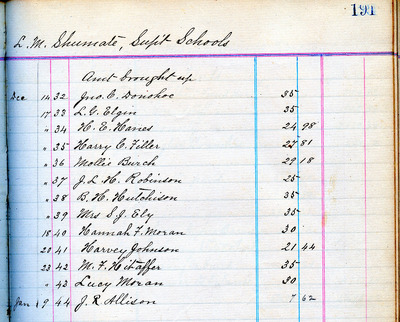 191
L. M. Shumate, Supt Schools
Amt brought up
Dec 14 32 Jno. C. Donohoe 35
17 33 L. G. Elgin 35
" 34 H. E. Hanes 24 98
" 35 Harry C. Filler 22 81
" 36 Mollie Burch 29 18
" 37 J. L. H. Robinson 25
" 38 B. H. Hutchison 35
" 39 Mrs S. J. Ely 35
18 40 Hannah F. Moran 30
20 41 Harvey Johnson 21 44
23 42 M. F. Hitaffer 35
" 43 Lucy Moran 30
Jan 9 44 J. R. Allison 7 62